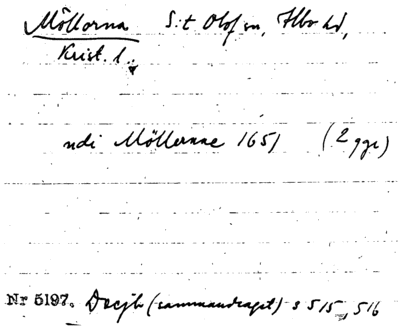 Möllorna S:t Olof sn, Albo hd,
Krist. l.
udi Möllerne 1651 (2 ggr)
Nr 5197. Decjb (sammandraget) s 515, 516